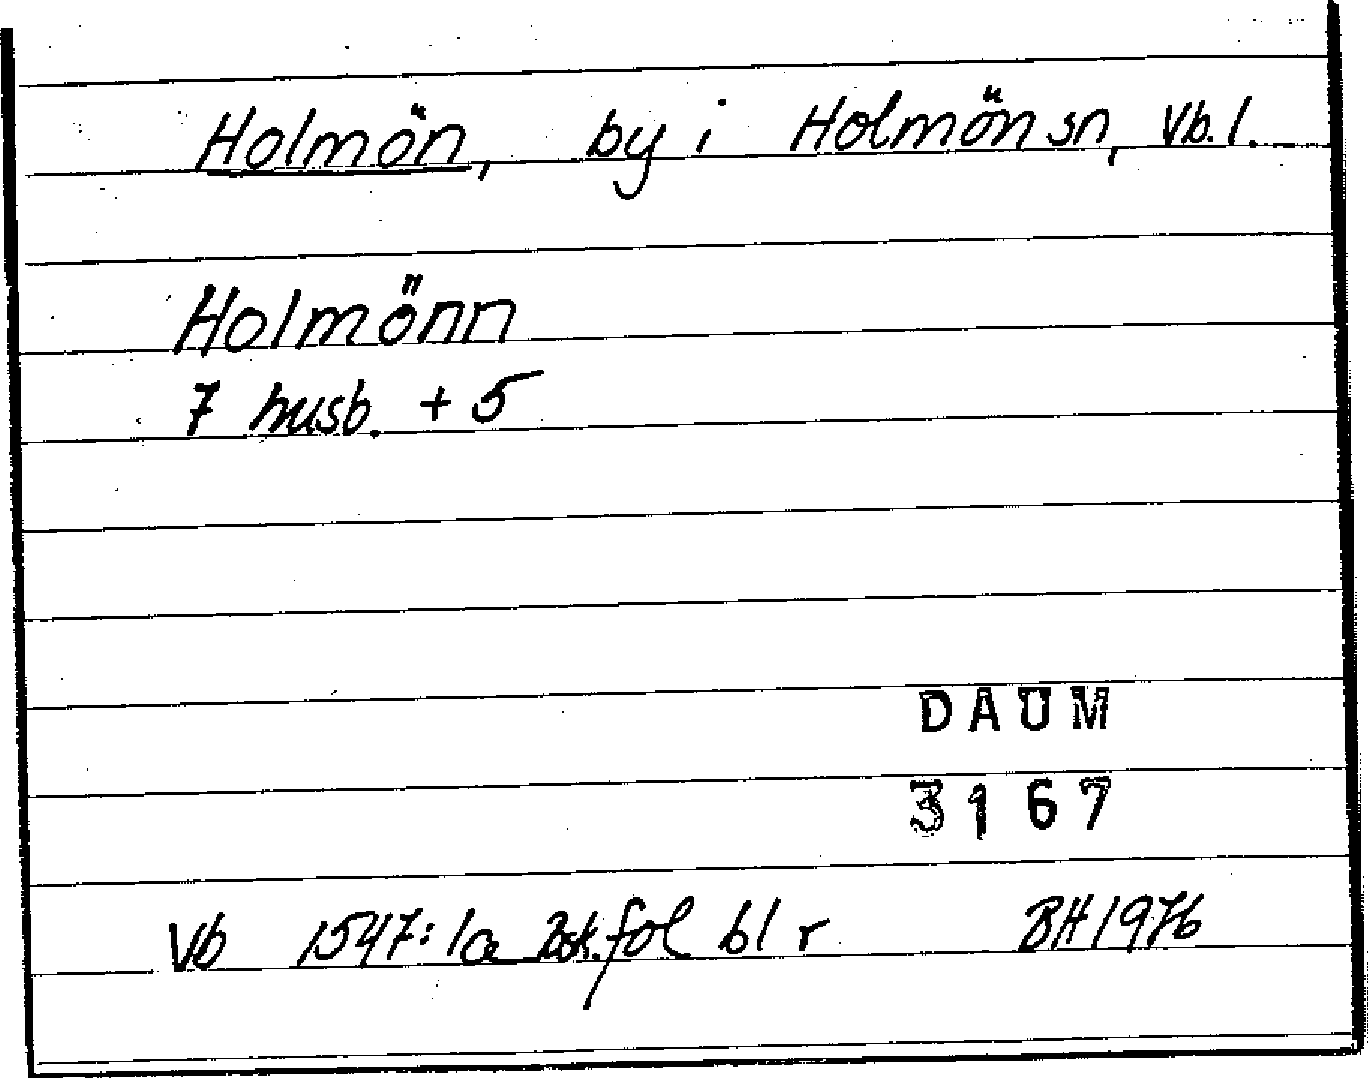 Holmön, by i Holmön sn, Vb. l.
Holmönn
7 husb. + 5
DAUM
3167
Vb 1547:1a fol 61 r BH 1976